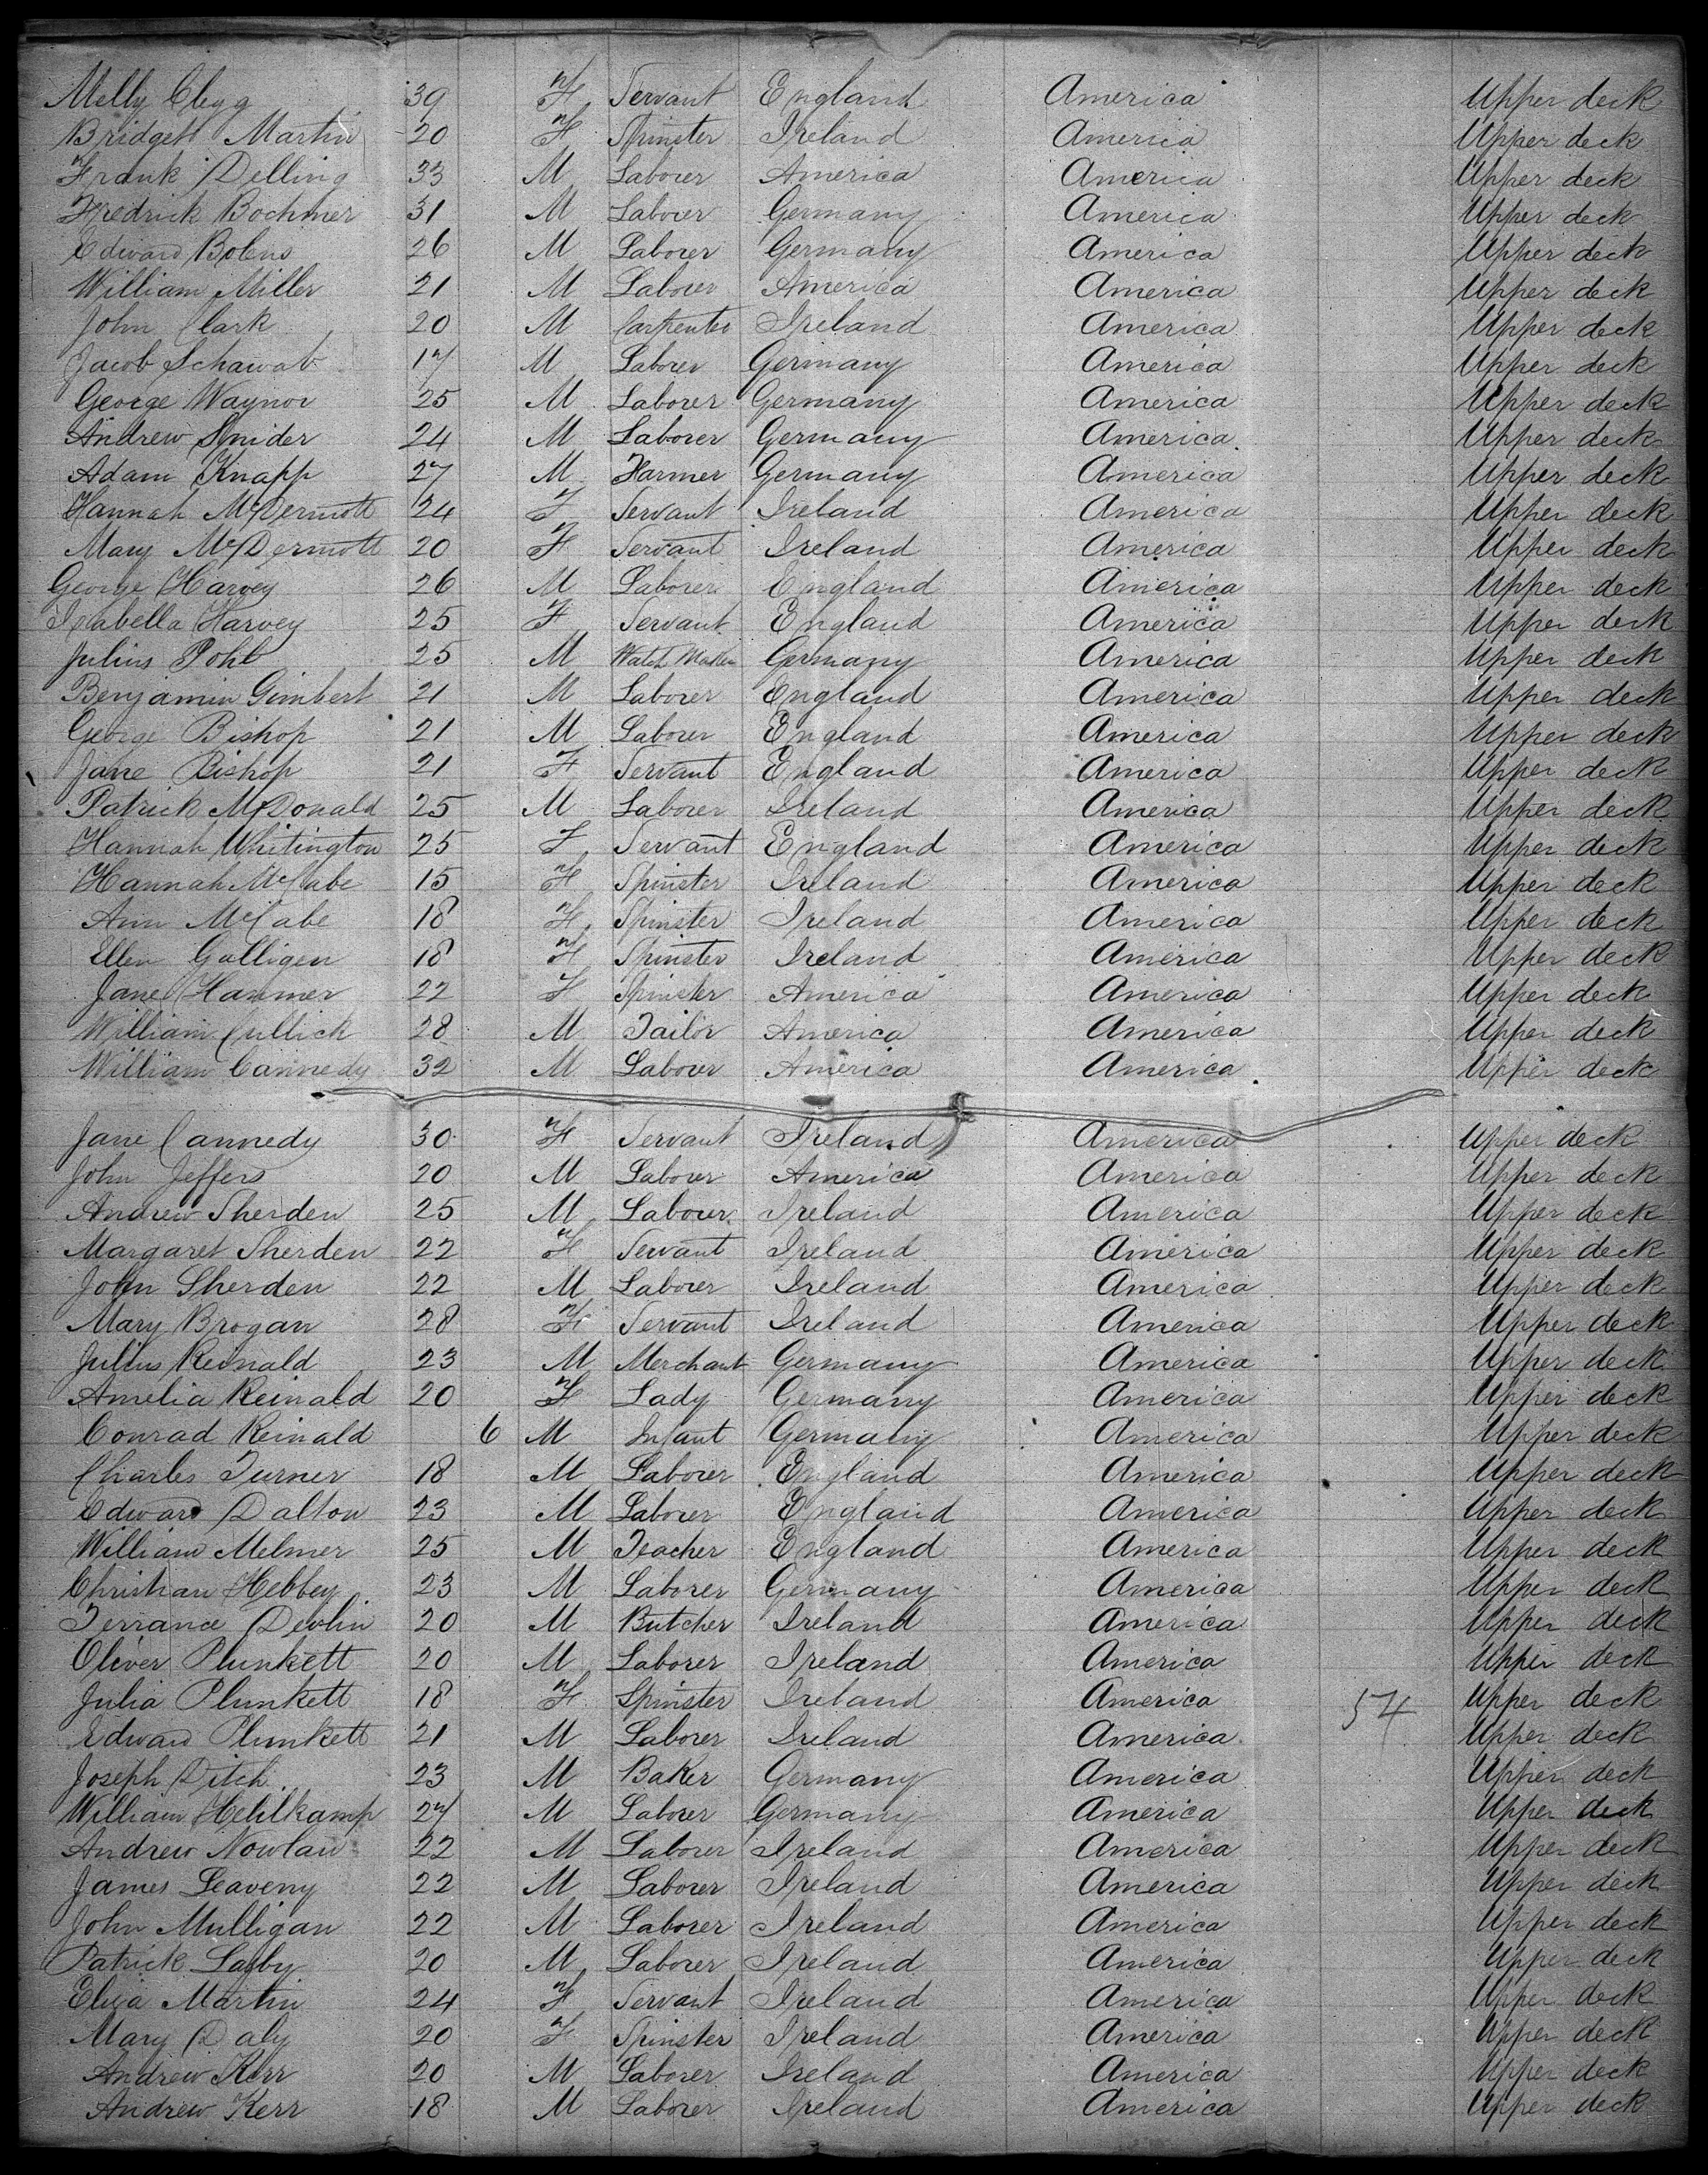 Melly Clegg 39 F Servant England America Upper deck
Bridgett Martin 20 F Spinster Ireland America Upper deck
Frank Delling 33 M Laborer America America Upper deck
Fredrick Bochmer 31 M Laborer Germany America Upper deck
Edward Bolens 26 M Laborer Germany America Upper deck
William Miller 21 M Laborer America America Upper deck
John Clark 20 M Carpenter Ireland America Upper deck
Jacob Schawab 17 M Laborer Germany America Upper deck
George Waynor 25 M Laborer Germany America Upper deck
Andrew Snider 24 M Laborer Germany America Upper deck
Adam Knapp 27 M Farmer Germany America Upper deck
Hannah McDermott 24 F Servant Ireland America Upper deck
Mary McDermott 20 F Servant Ireland America Upper deck
George Harvey 26 M Laborer England America Upper deck
Isabella Harvey 25 F Servant England America Upper deck
Julius Pohl 25 M Watch Maker Germany America Upper deck
Benjamin Gimbert 21 M Laborer England America Upper deck
George Bishop 21 M Laborer England America Upper deck
Jane Bishop 21 F Servant England America Upper deck
Patrick McDonald 25 M Laborer Ireland America Upper deck
Hannah Whitington 25 F Servant England America Upper deck
Hannah McCabe 15 F Spinster Ireland America Upper deck
Ann McCabe 18 F Spinster Ireland America Upper deck
Ellen Galligen 18 F Spinster Ireland America Upper deck
Jane Hammer 22 F Spinster America America Upper deck
William Cullick 28 M Tailor America America Upper deck
William Cannedy 32 M Labour America America Upper deck
Jane Cannedy 30 F Servant Ireland America Upper deck
John Jeffers 20 M Laborer America America Upper deck
Andrew Sherden 25 M Labourer Ireland America Upper deck
Margaret Sherden 22 F Servant Ireland America Upper deck
John Sherden 22 M Laborer Ireland America Upper deck
Mary Brogan 28 F Servant Ireland America Upper deck
Julius Reinald 23 M Merchant Germany America Upper deck
Amelia Reinald 20 F Lady Germany America Upper deck
Conrad Reinald 6 M Infant Germany America Upper deck
Charles Turner 18 M Laborer England America Upper deck
Edward Dalton 23 M Laborer England America Upper deck
William Melmer 25 M Teacher England America Upper deck
Christian Hebbey 23 M Laborer Germany America Upper deck
Terrance Devlin 20 M Butcher Ireland America Upper deck
Oliver Plunkett 20 M Laborer Ireland America Upper deck
Julia Plunkett 18 F Spinster Ireland America 54 Upper deck
Edward Plunkett 21 M Laborer Ireland America Upper deck
Joseph Ditch 23 M Baker Germany America Upper deck
William Hehlkamp 27 M Laborer Germany America Upper deck
Andrew Nowlan 22 M Laborer Ireland America Upper deck
James Leaveny 22 M Laborer Ireland America Upper deck
John Mulligan 22 M Laborer Ireland America Upper deck
Patrick 20 M Laborer Ireland America Upper deck
Eliza Martin 24 F Servant Ireland America Upper deck
Mary Daly 20 F Spinster Ireland America Upper deck
Andrew Kerr 20 M Laborer Ireland America Upper deck
Andrew Kerr 18 M Laborer Ireland America Upper deck